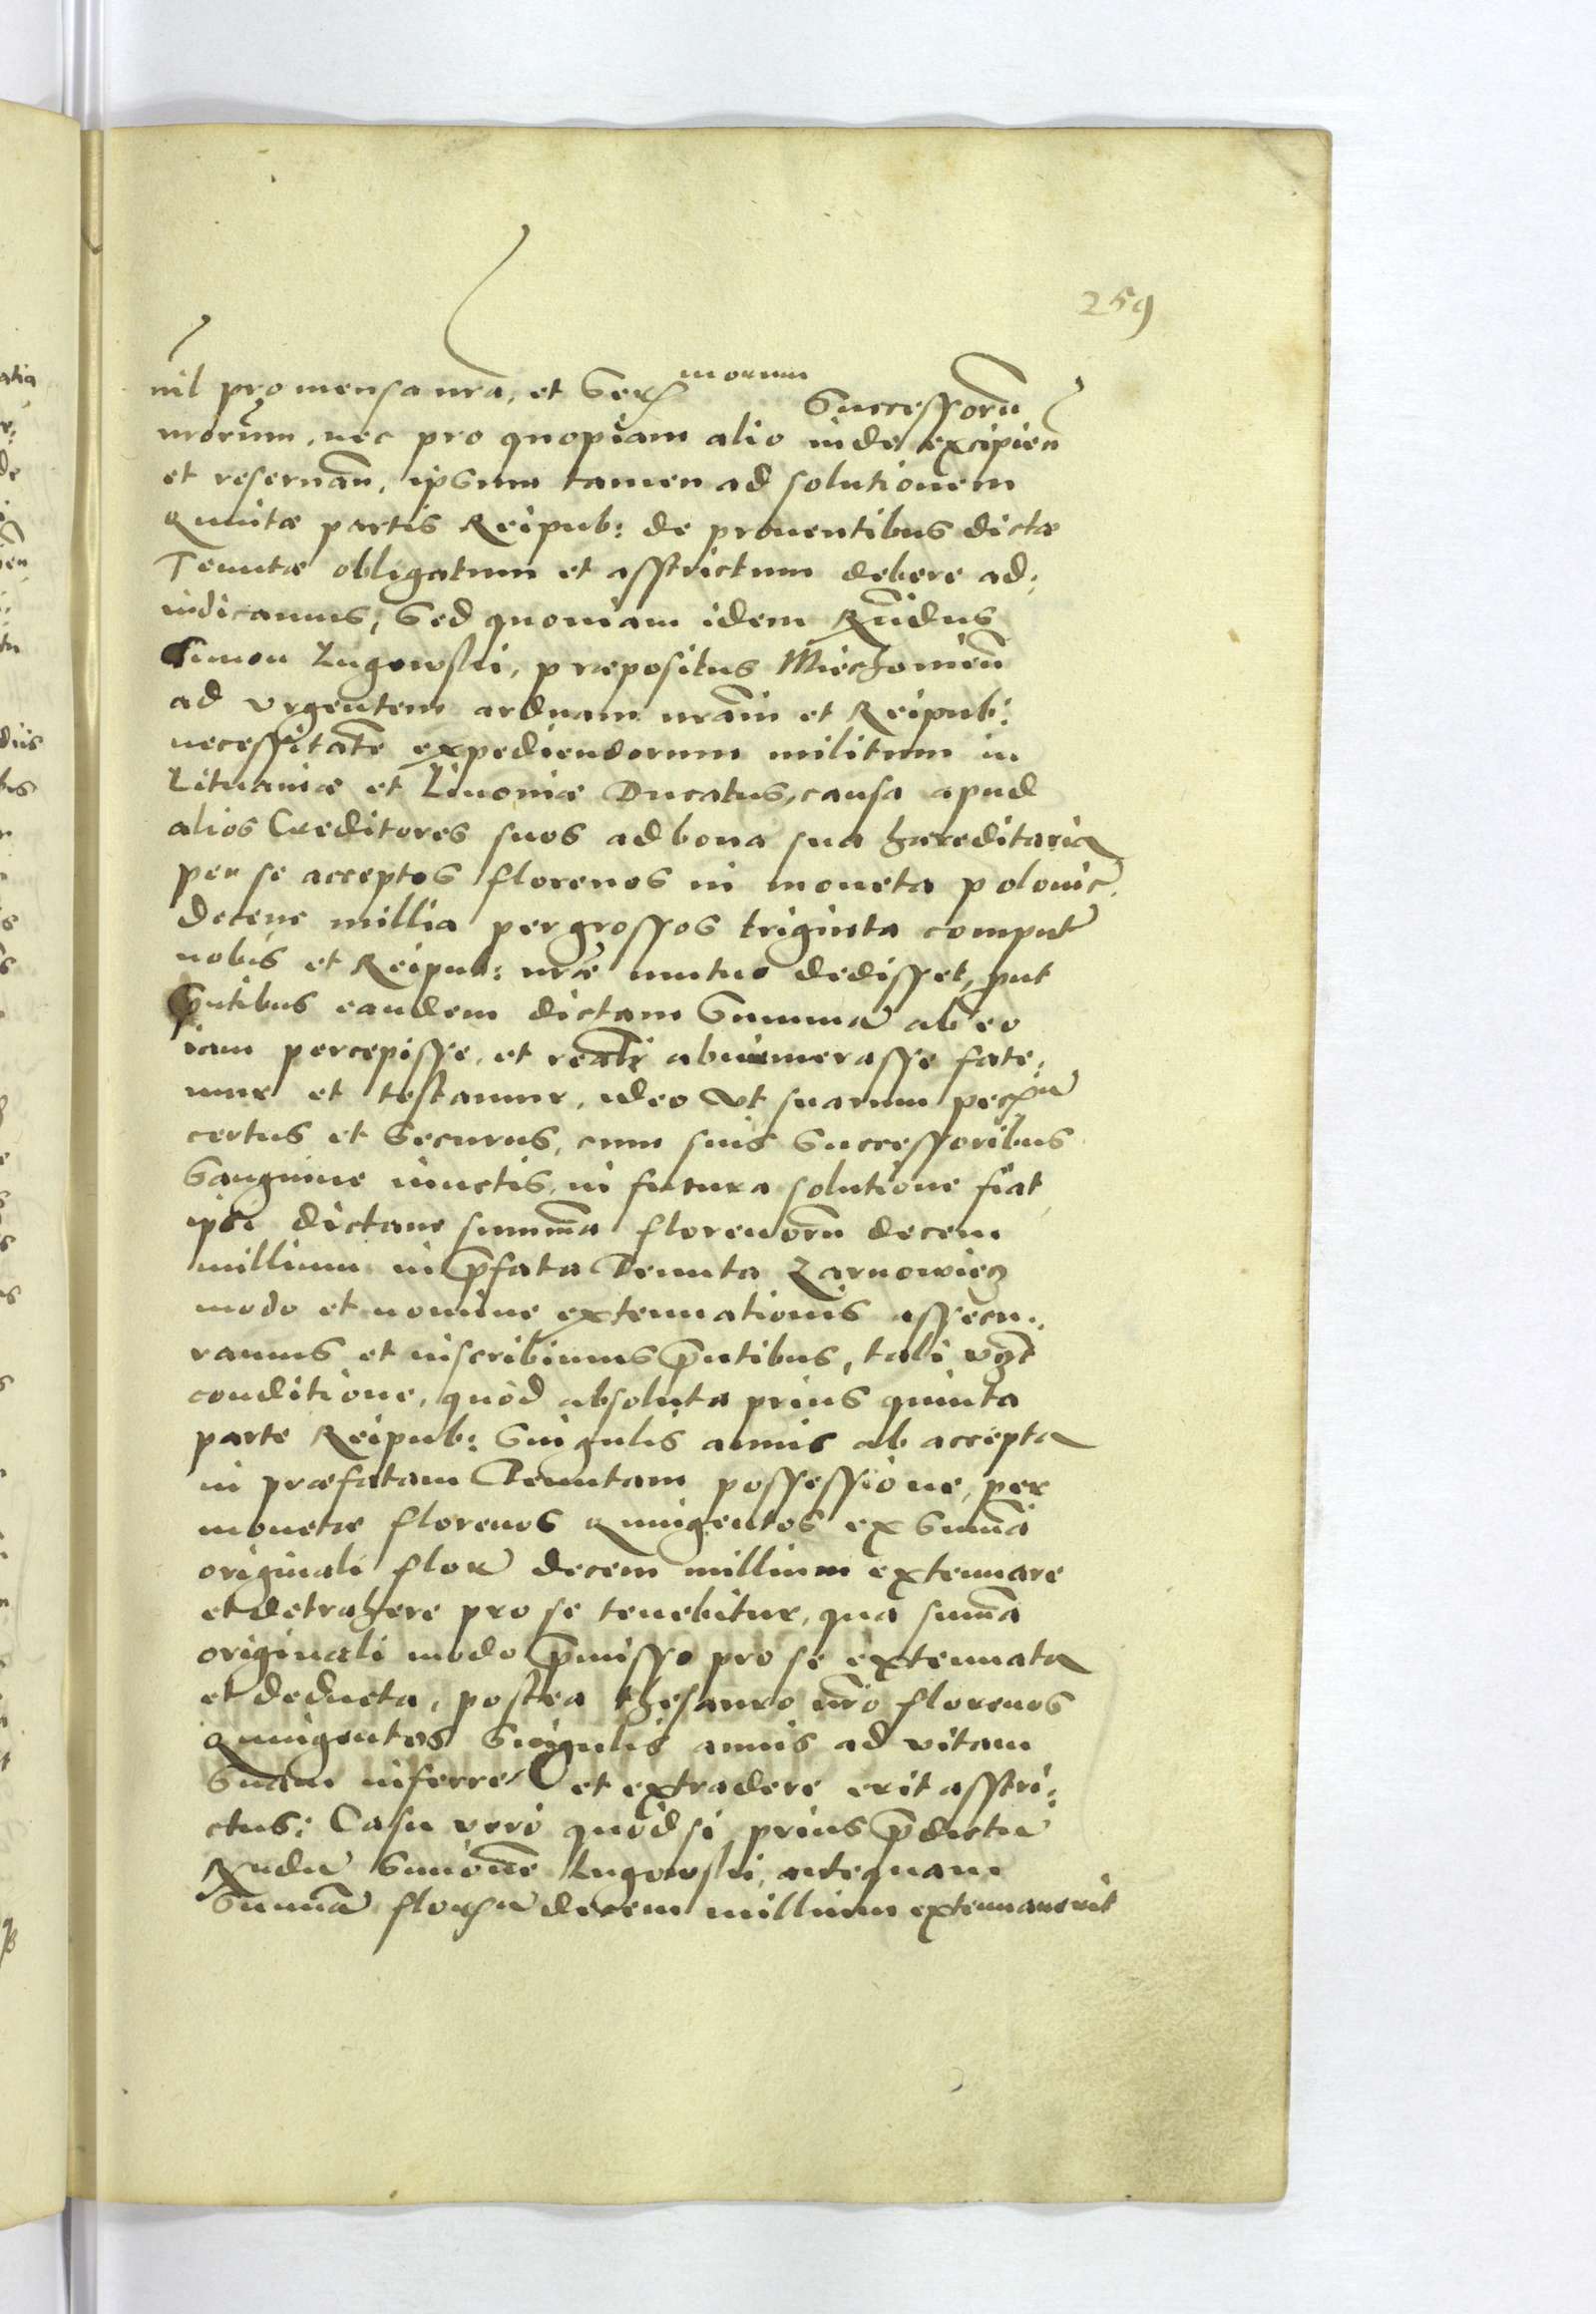 259
nil pro mensa nra, et Ser morum Successorū
nrorum, nec pro quopiam alio inde excipien̄
et reseruan̄, ipsum tamen ad solutionem
Quintæ partis Reipub: de prouentibus dictæ
Tenutæ obligatum et asstrictum debere ad:
iudicamus, Sed quoniam idem Rn̄dus
Simon Lugowski, præpositus Miechouien̄
ad vrgentem arduam nram̄ et Reipub:
necessitatē expediendorum militum in
Lituaniæ et Liuoniæ Ducatus, causa apud
alios Creditores suos ad bona sua hæreditaria
per se acceptos florenos in moneta polonic̄.
Decem millia per grossos triginta comput̄
nobis et Reipub: nræ mutuo dedisset, put
pn̄tibus eandem dictam Summā ab eo
iam percepisse, et realr̄ abnumerasse fate:
mur et testamur, ideo vt suarum pec
certus et Securus, cum suis Successoribus
Sanguine iunctis, in futura solutione fiat
ipsi dictam summā florenorū decem
millium in p̄fata Tenuta Zarnowiec
modo et nomine extenuationis assecu:
ramus et inscribimus p̄ntibus, tali vz̄t
conditione, quòd absoluta prius quinta
parte Reipub: Singulis annis ab accepta
in præfatam Tenutam possessione, per
monetæ florenos Quingentos ex Summa
originali flor̄ decem millium extenuare
et detrahere pro se tenebitur, qua summa
originali modo p̄misso pro se extenuata
et deducta, postea thesauro nr̄o florenos
Quingentos Singulis annis ad vitam
Suam inferre et extradere erit asstri:
ctus: Casu verò quòd si prius p̄dictū
Rn̄dū Simonē Lugowski, antequam
Summā decem millium extenuauerit